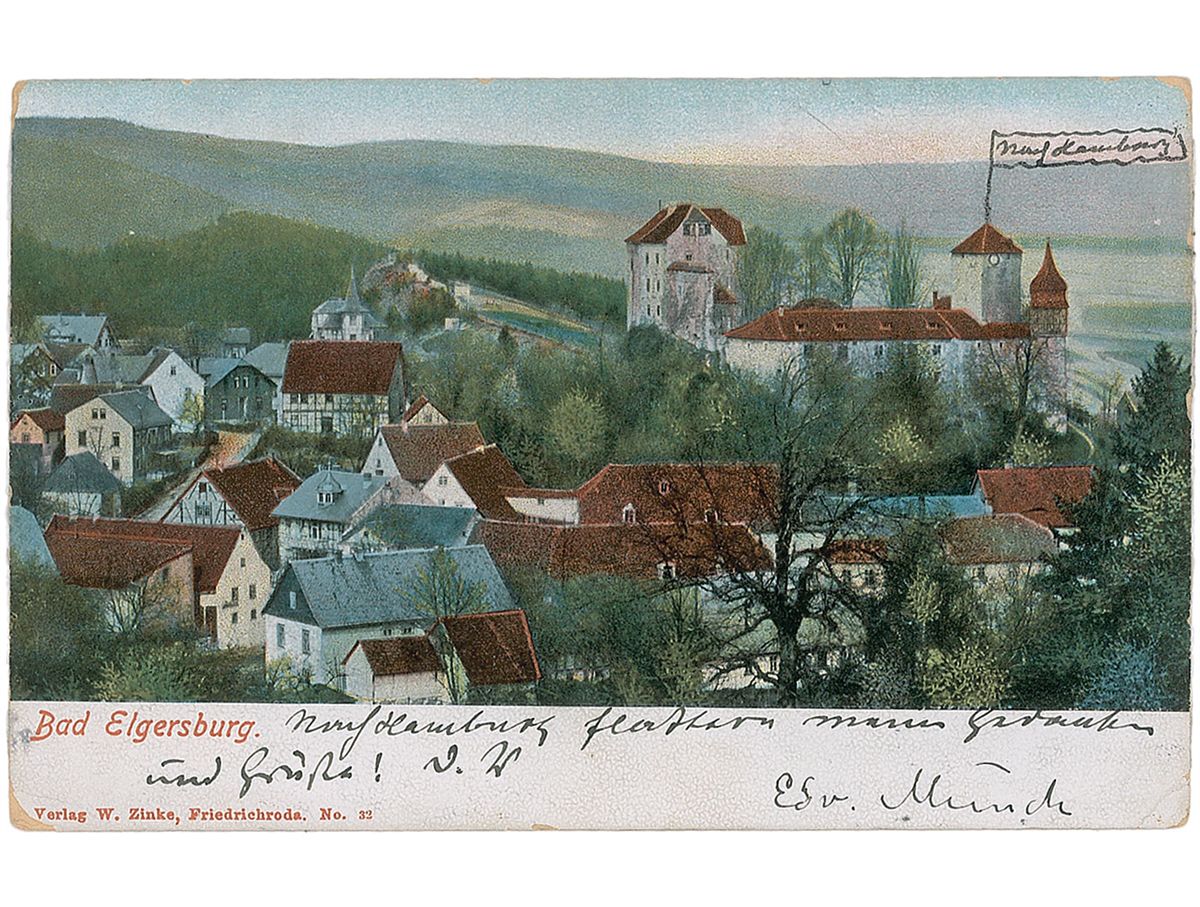 nach Hamburg
Bad Elgersburg. Nach Hamburg flattern meine Gedanken
und Grüße! D. W
Edv. Munch
Verlag W. Zinke, Friedrichroda. No. 32